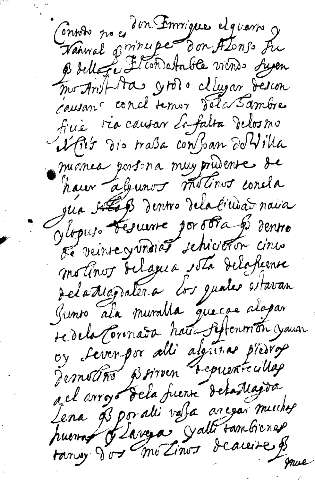 Con todo no es don Enrrique el quarto y
Natural principe don Alonso su
q della El Conde Anble viendo su yen
mo Ari ta y todo el lugar descon
causan con el temor de la hambre
que ria causar la falta de los mo
linos dio traba con Joan de Villa
nueva persona muy prudente de
hacer algunos molinos con la
gua q dentro de la ciudad navia
y lo puso de suerte por obra q dentro
de veinte y un dias se hicieron cinco
molinos del agua sola de la fuente
de la Magdalena los quales estavan
junto a la muralla que cae a la par
te de la Coronada hacia septentrion y aun
oy se ven por alli algunas piedras
de molino q sirven de puentecillas
a el arroyo de la fuente de la Magda
lena q por alli passa a regar muchas
huertas y la vega y alli tambien es
tan oy dos molinos de aceite q
mue